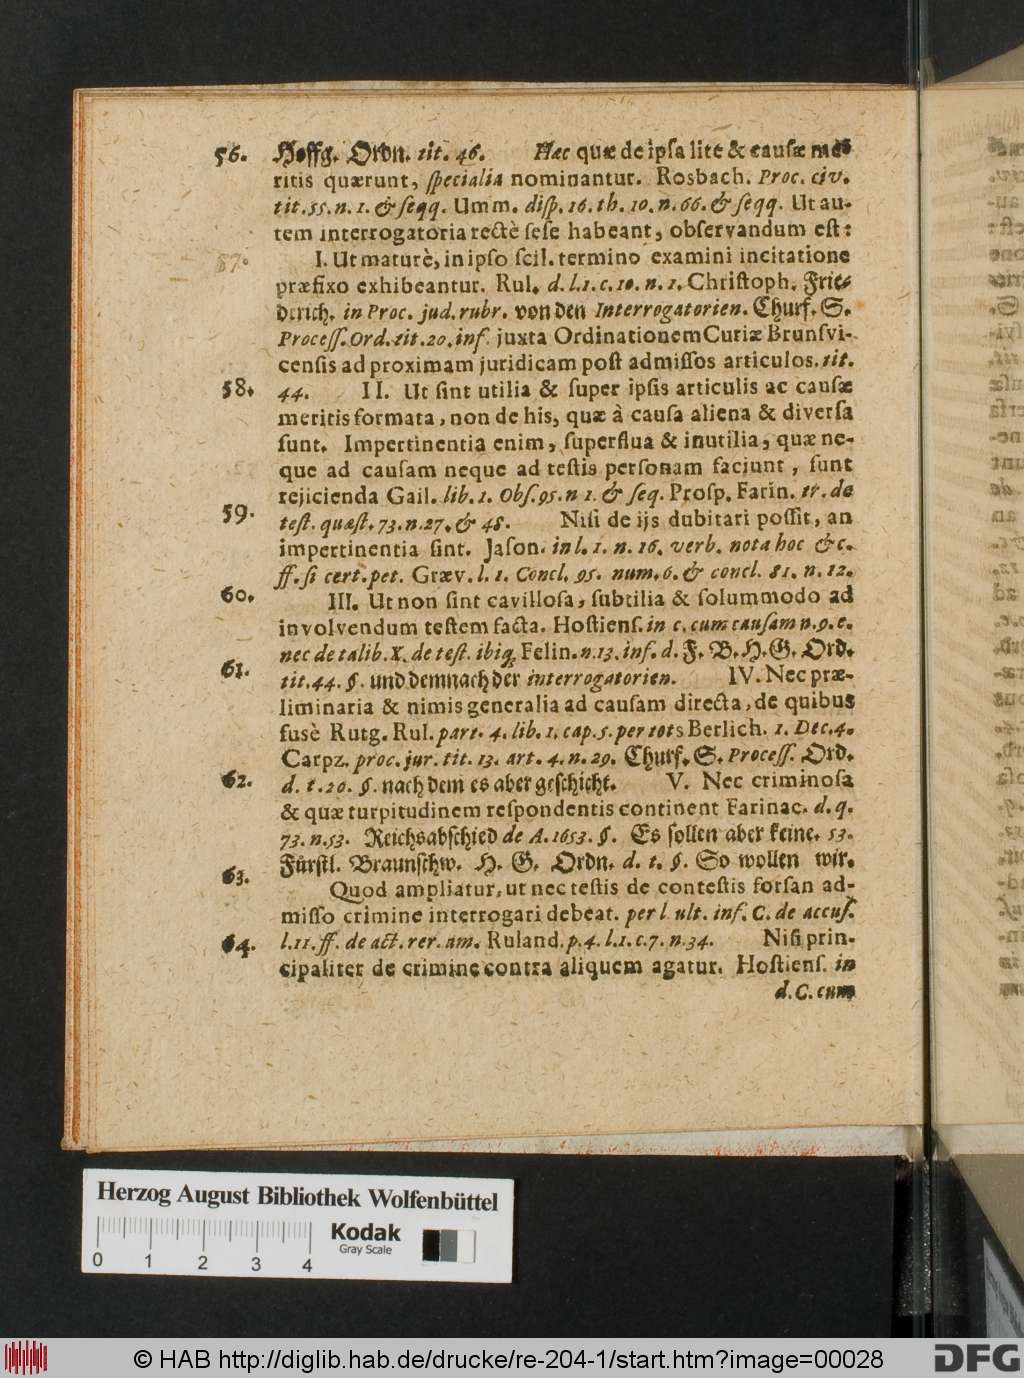 56. Hoffg. Ordn. tit. 46. Hæc quæ de ipſa lite & cauſæ me-
ritis quærunt, ſpecialia nominantur. Rosbach. Proc. civ.
tit. 55. n. 1. & ſeqq. Umm. diſp. 16. th. 10. n. 66. & ſeqq. Ut au-
tem interrogatoria rectè ſeſe habeant, obſervandum eſt:
57. I. Ut maturè, in ipſo ſcil. termino examini incitatione
præfixo exhibeantur. Rul. d. l. 1. c. 10. n. 1. Chriſtoph. Frie-
derich. in Proc. jud. rubr. von den Interrogatorien. Churf. S.
Proceſſ. Ord. tit. 20. inf. juxta Ordinationem Curiæ Brunſvi-
cenſis ad proximam juridicam poſt admiſſos articulos. tit.
58. 44. II. Ut ſint utilia & ſuper ipſis articulis ac cauſæ
meritis formata, non de his, quæ à cauſa aliena & diverſa
ſunt. Impertinentia enim, ſuperflua & inutilia, quæ ne-
que ad cauſam neque ad teſtis perſonam faciunt, ſunt
rejicienda Gail. lib. 1. Obſ. 95. n 1. & ſeq. Proſp. Farin. tr. de
59. teſt. quæſt. 73. n. 27. & 48. Niſi de ijs dubitari poſſit, an
impertinentia ſint. Jaſon. in l. 1. n. 16. verb. nota hoc &c.
ff. ſi cert. pet. Græv. l. 1. Concl. 95. num. 6. & concl. 81. n. 12.
60. III. Ut non ſint cavilloſa, ſubtilia & ſolummodo ad
involvendum teſtem facta. Hoſtienſ. in c. cum cauſam n. 9. e.
nec de talib. X. de teſt. ibiq; Felin. n. 13. inf. d. F. B. H. G. Ord.
61. tit. 44. §. und demnach der interrogatorien. IV. Nec præ-
liminaria & nimis generalia ad cauſam directa, de quibus
fusè Rutg. Rul. part. 4. lib. 1. cap. 5. per tots Berlich. 1. Dec. 4.
Carpz. proc. jur. tit. 13. art. 4. n. 29. Churf. S. Proceſſ. Ord.
62. d. t. 20. §. nach dem es aber geſchicht. V. Nec criminoſa
& quæ turpitudinem reſpondentis continent Farinac. d. q.
73. n. 53. Reichsabſchied de A. 1653. §. Es ſollen aber keine. 53.
Fürſtl. Braunſchw. H. G. Ordn. d. t. §. So wollen wir.
63. Quod ampliatur, ut nec teſtis de conteſtis forſan ad-
miſſo crimine interrogari debeat. per l ult. inf. C. de accuſ.
64. l. 11. ff. de act. rer. am. Ruland. p. 4. l. 1. c. 7. n. 34. Niſi prin-
cipaliter de crimine contra aliquem agatur. Hoſtienſ. in
d. C. cum
Herzog August Bibliothek Wolfenbüttel
Kodak
Gray Scale
0 1 2 3 4
© HAB http://diglib.hab.de/drucke/re-204-1/start.htm?image=00028
DFG